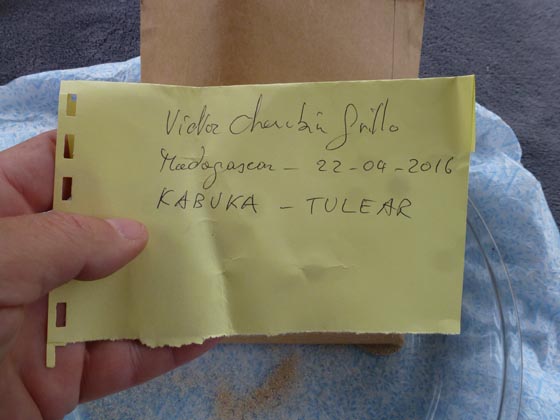 Victor Cherubin Grillo
Madagascar - 22-04-2016
KABUKA - TULEAR